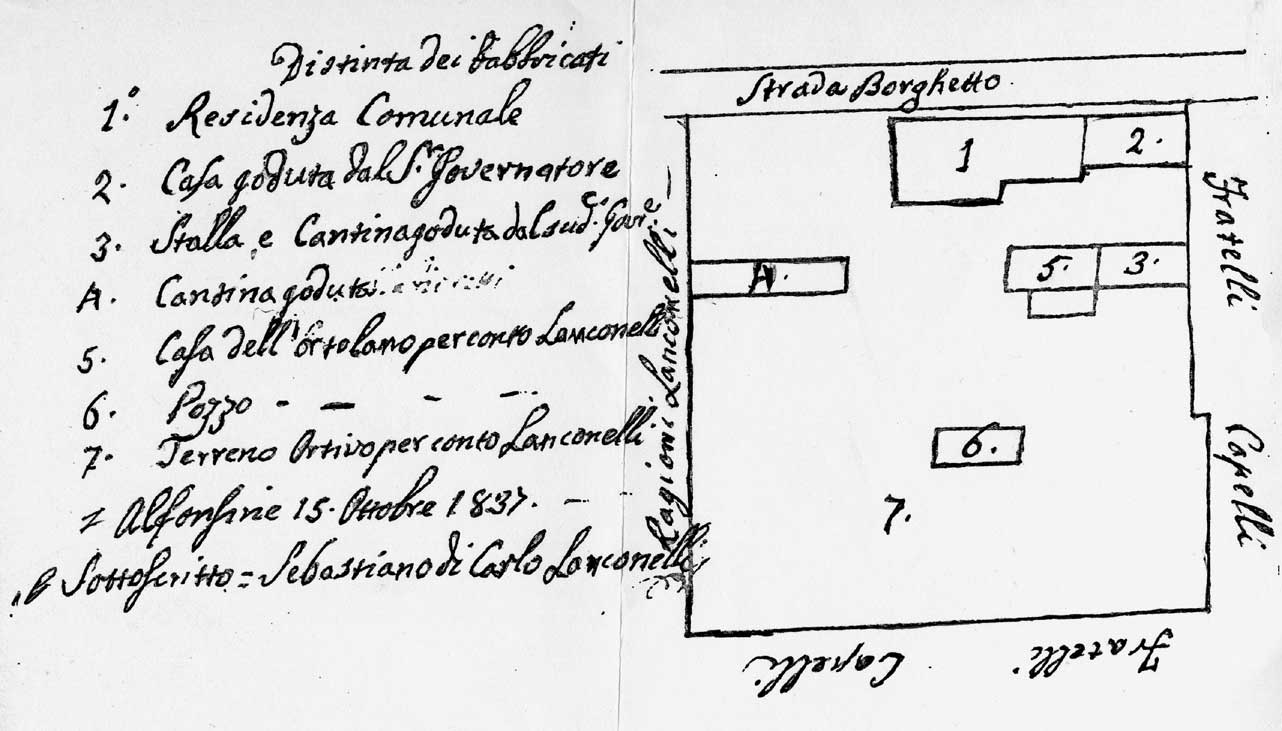 Distinta dei Fabbricati
1.° Residenza Comunale
2. Casa goduta dal S.r Governatore
3. Stalla, e Cantina goduta dal sud.° Gov.e
4. Cantina goduta
5. Casa dell'Ortolano per conto Lanconelli
6. Pozzo - — - —
7. Terreno Ortivo per conto Lanconelli
= Alfonsine 15. Ottobre 1837. —
Sottoscritto = Sebastiano di Carlo Lanconelli
Strada Borghetto.
1
2.
4.
5.
3.
6.
7.
Ragioni Lanconelli —
Fratelli
Capelli
Fratelli
Capelli